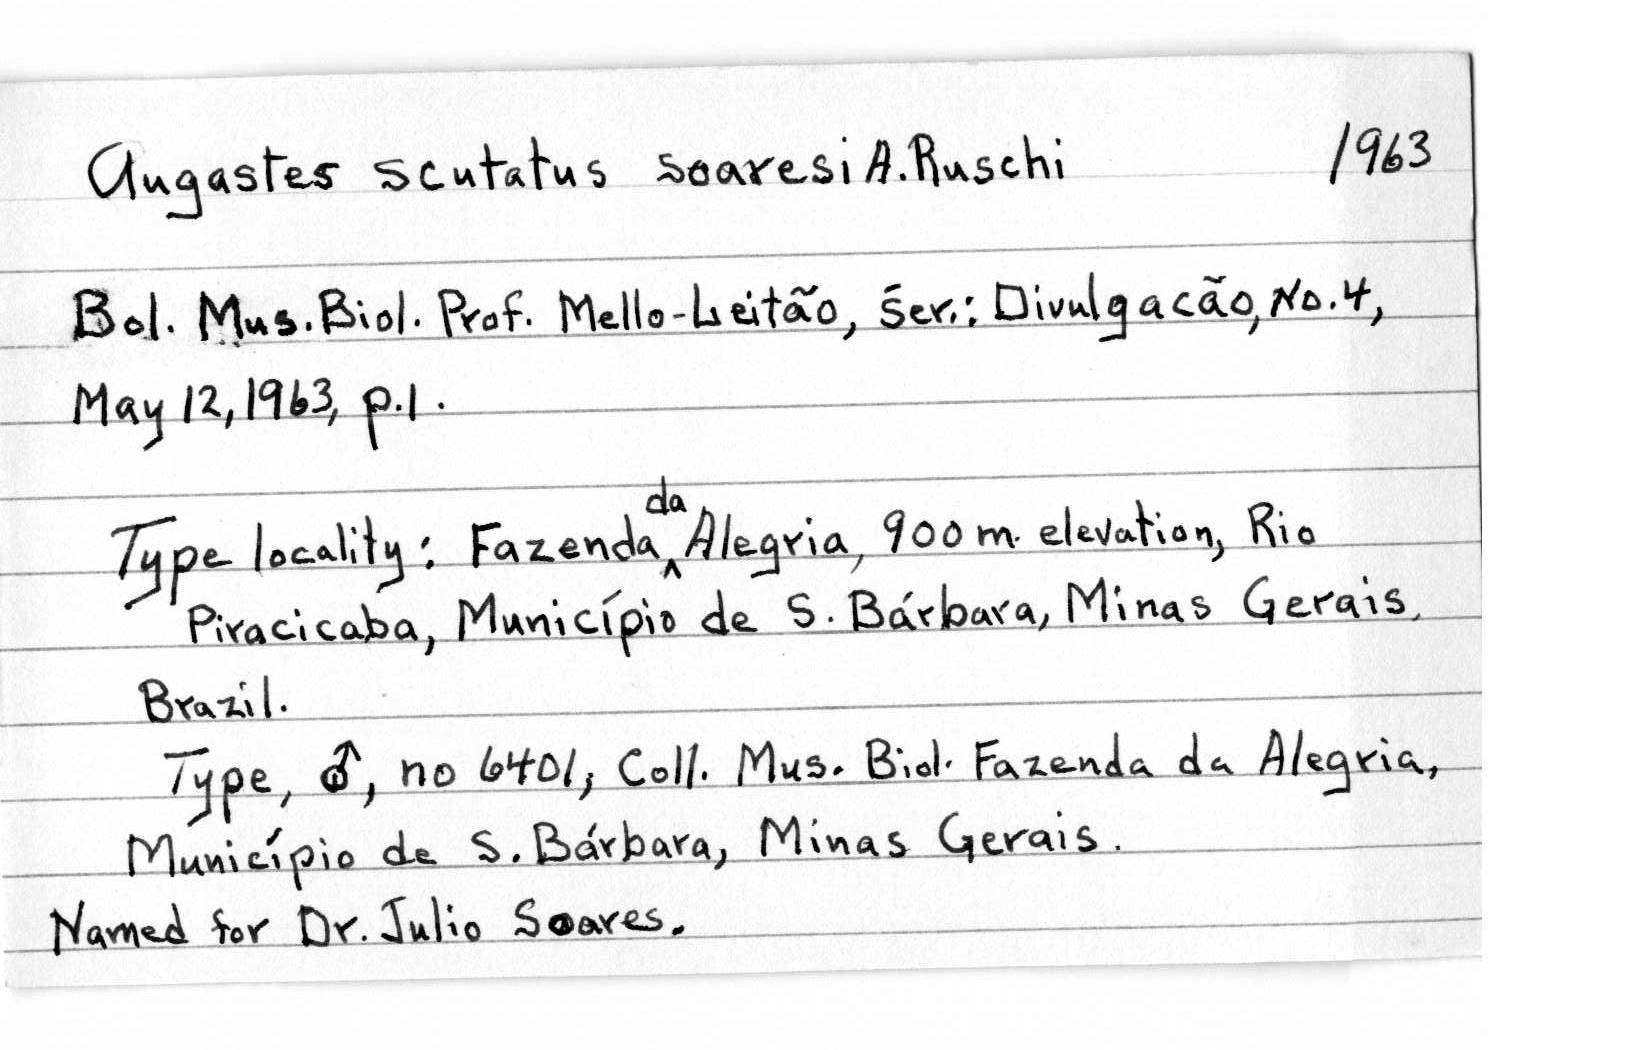 Augastes scutatus soaresi A. Ruschi 1963
Bol. Mus. Biol. Prof. Mello-Leitão, Ser.: Divulgacão, No. 4,
May 12, 1963, p. 1.
Type locality: Fazenda da Alegria, 900 m. elevation, Rio
Piracicaba, Município de S. Bárbara, Minas Gerais,
Brazil.
Type, ♂, no 6401, Coll. Mus. Biol. Fazenda da Alegria,
Município de S. Bárbara, Minas Gerais.
Named for Dr. Julio Soares.